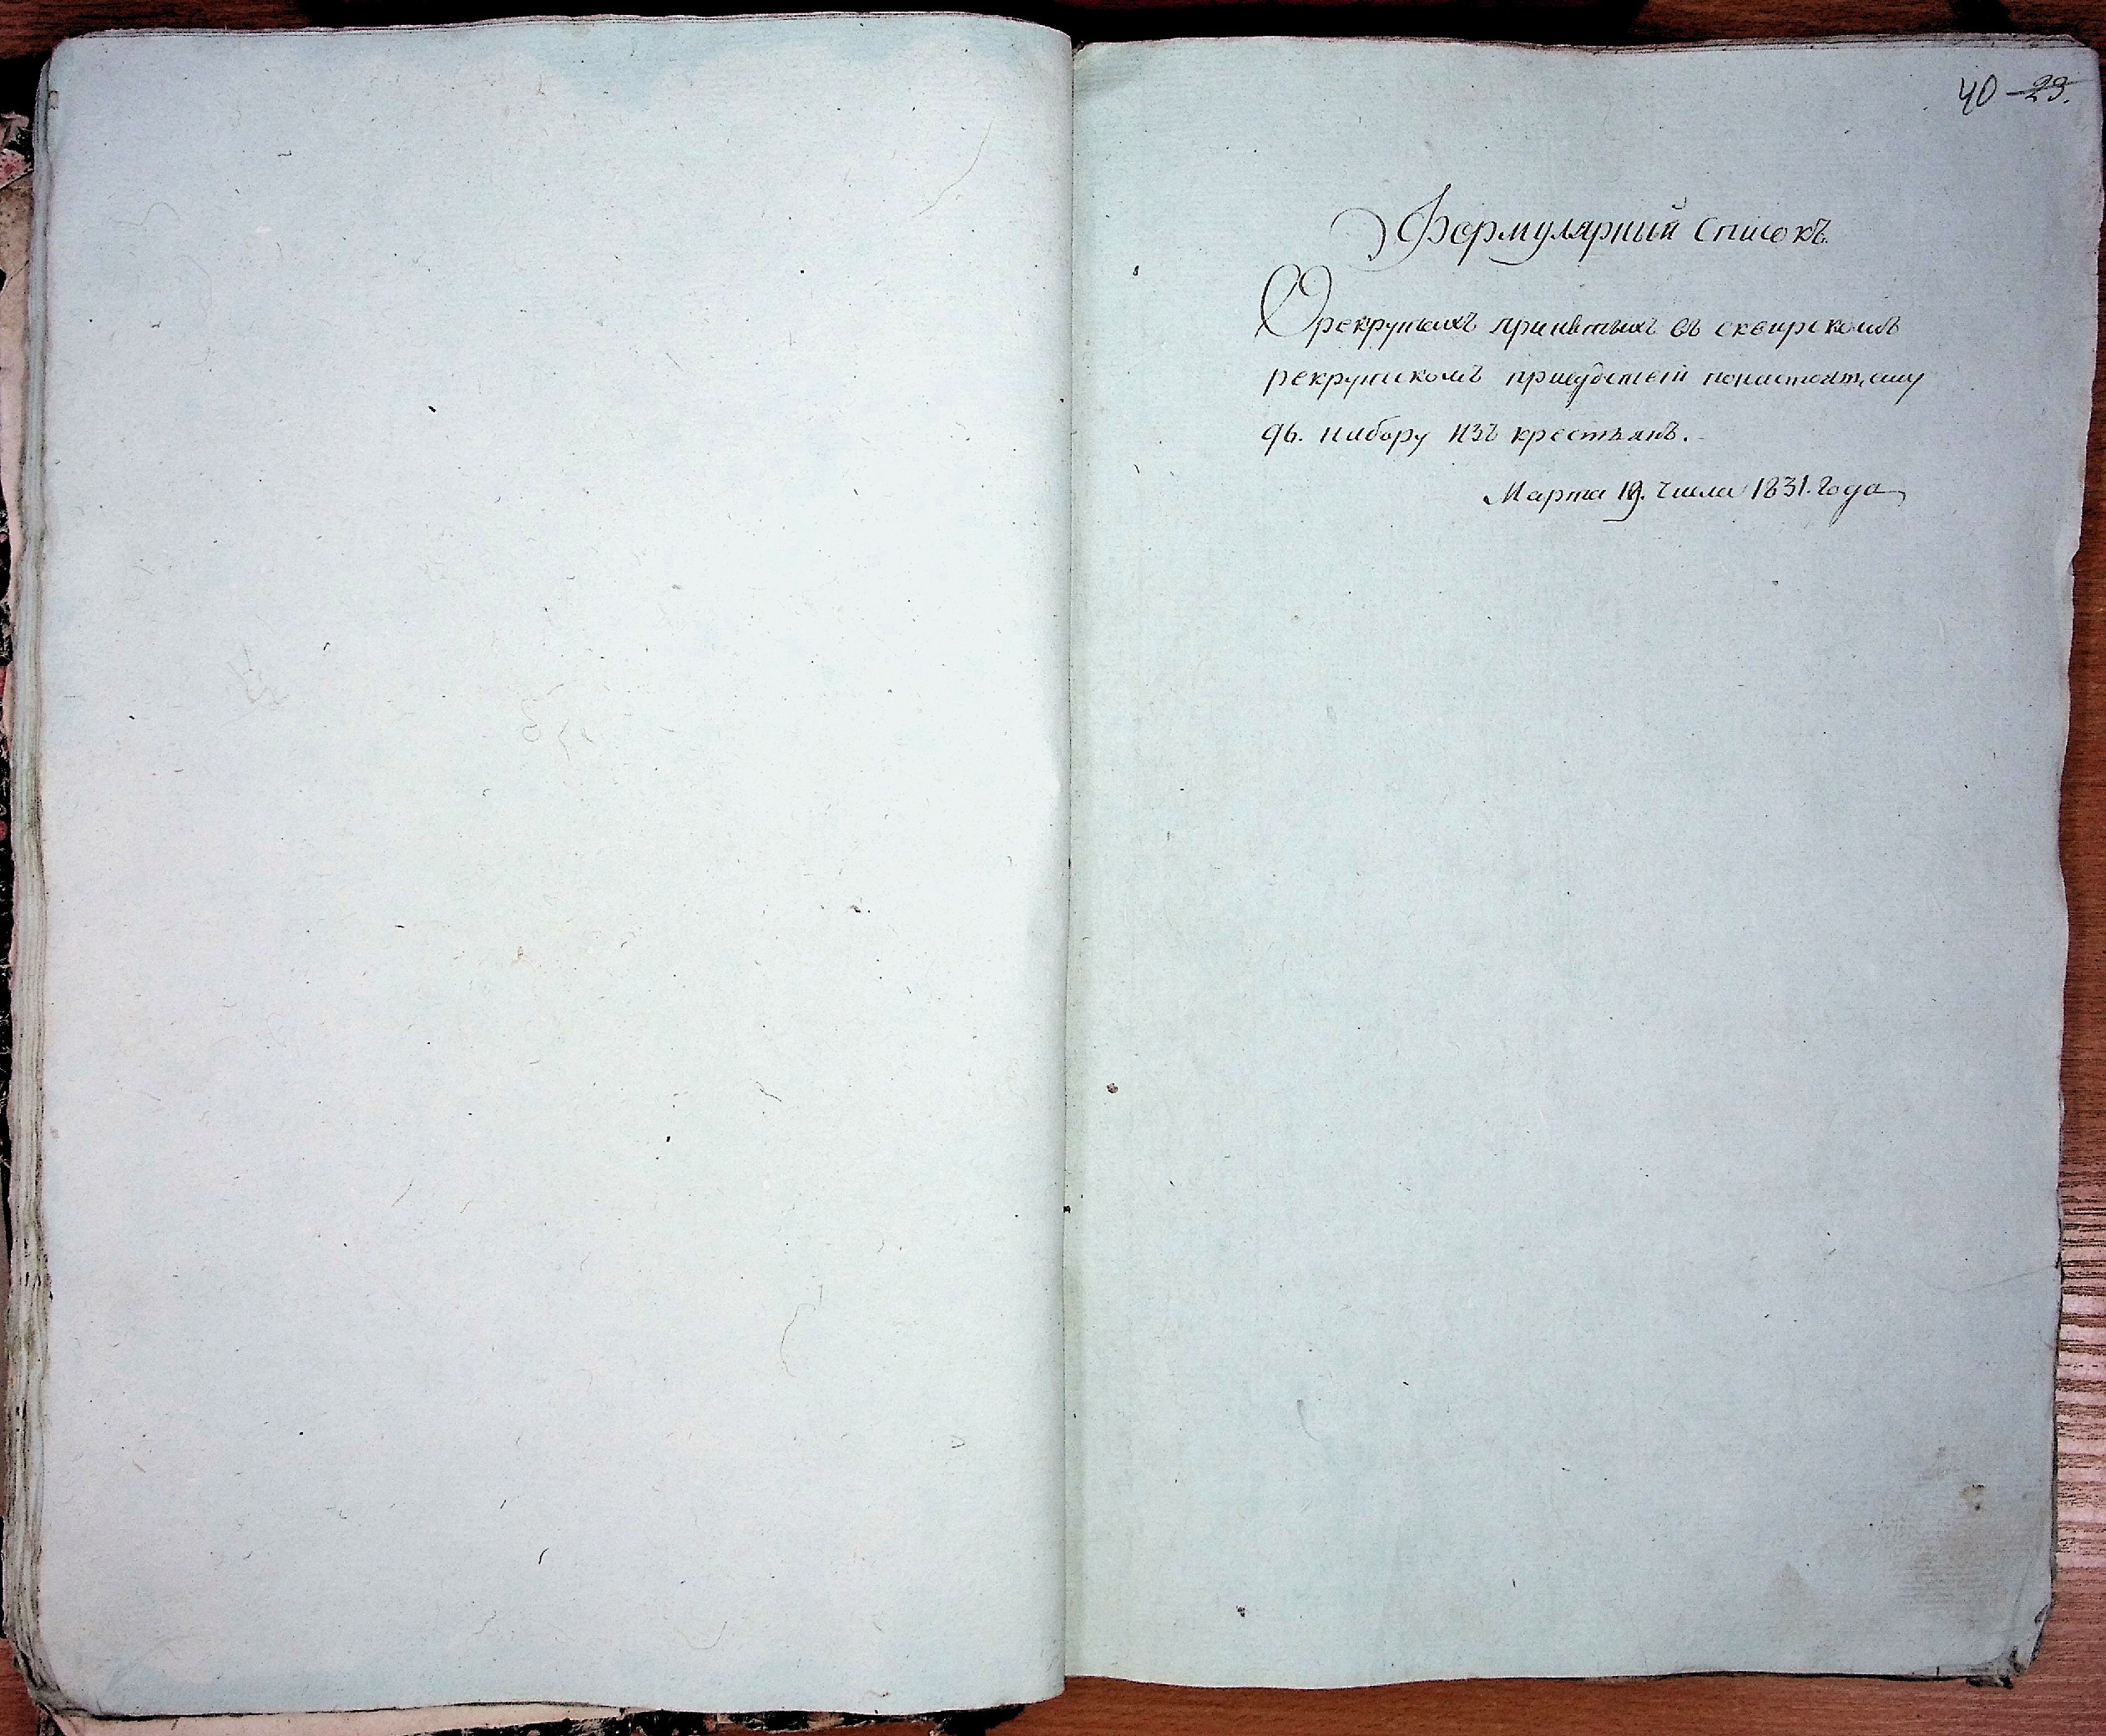 40 23.
Формулярный списокъ
О рекрутахъ принятыхъ въ сквирскомъ
рекрутскомъ присудствіи понастоящему
96. набору изъ крестьянъ.
Марта 19. числа 1831. Года